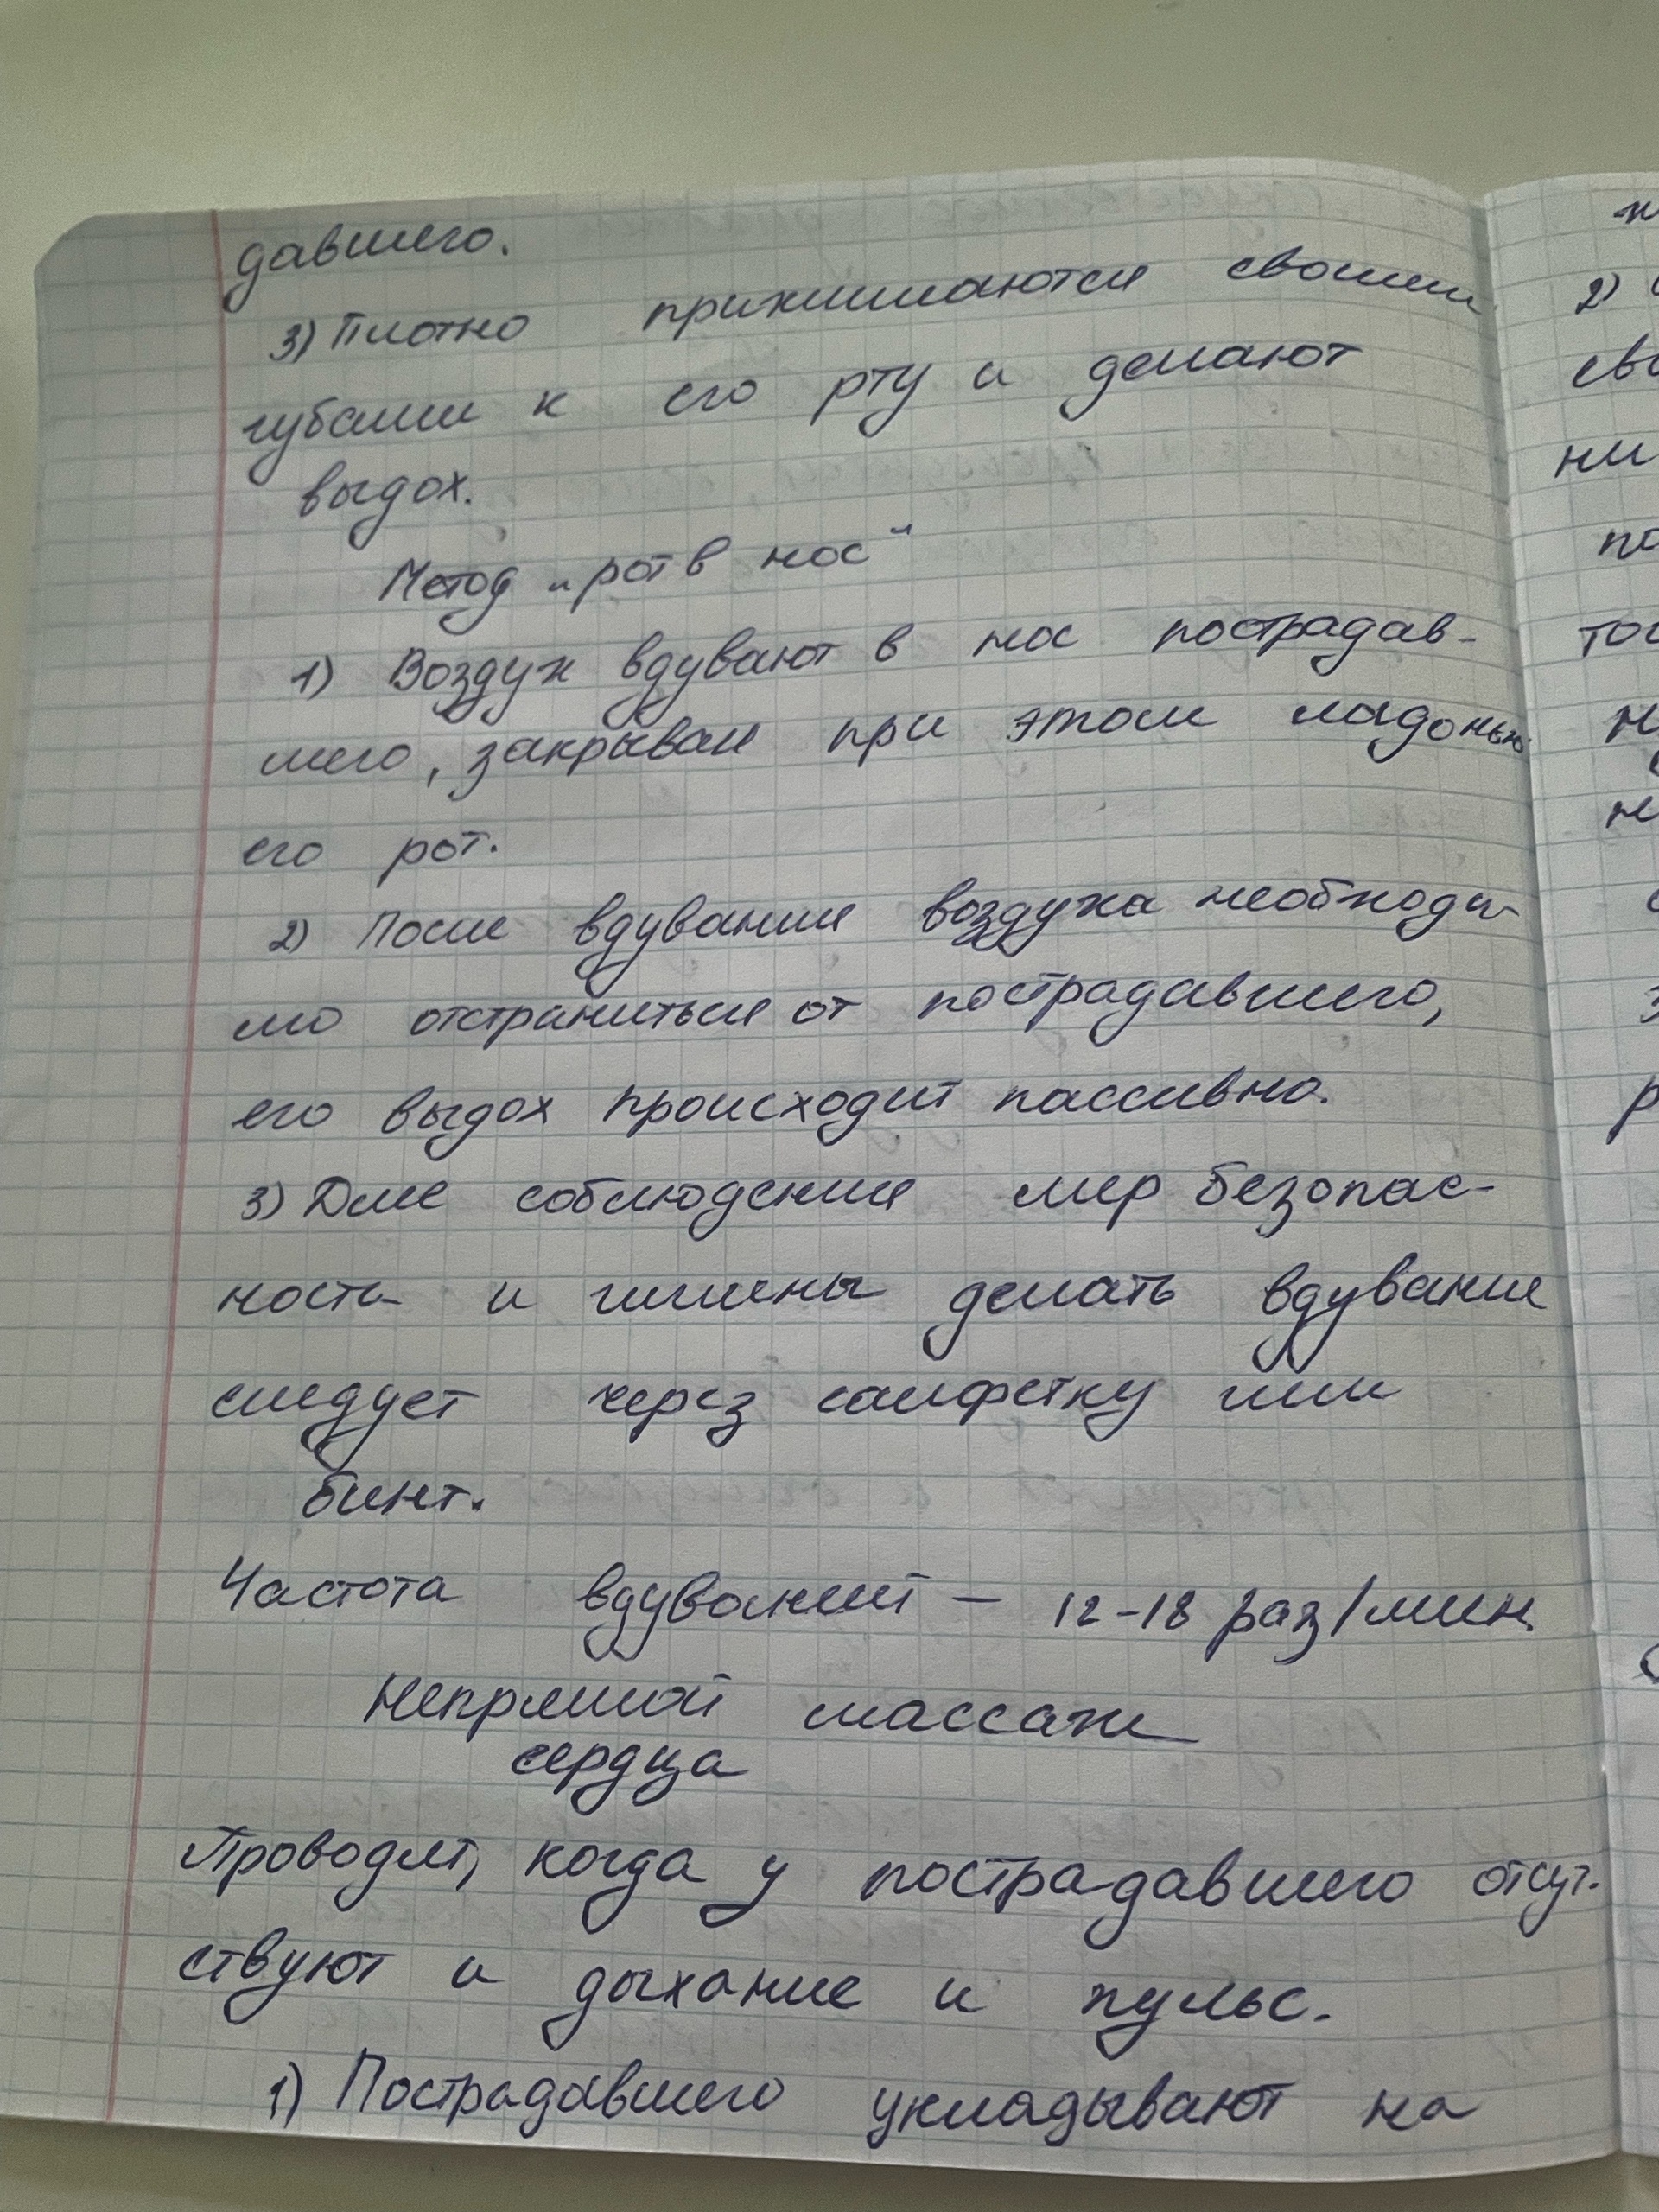 давшего.
3) Плотно прижимаются своими
губами к его рту и делают
выдох.
Метод „рот в нос"
1) Воздух вдувают в нос пострадав-
шего, закрывая при этом ладонью
его рот.
2) После вдувания воздуха необходи-
мо отстраниться от пострадавшего,
его выдох происходит пассивно.
3) Для соблюдения мер безопас-
ности и гигиены делать вдувание
следует через салфетку или
бинт.
Частота вдуваний – 12-18 раз/мин.
Непрямой массаж
сердца
Проводят, когда у пострадавшего отсут-
ствуют и дыхание и пульс.
1) Пострадавшего укладывают на